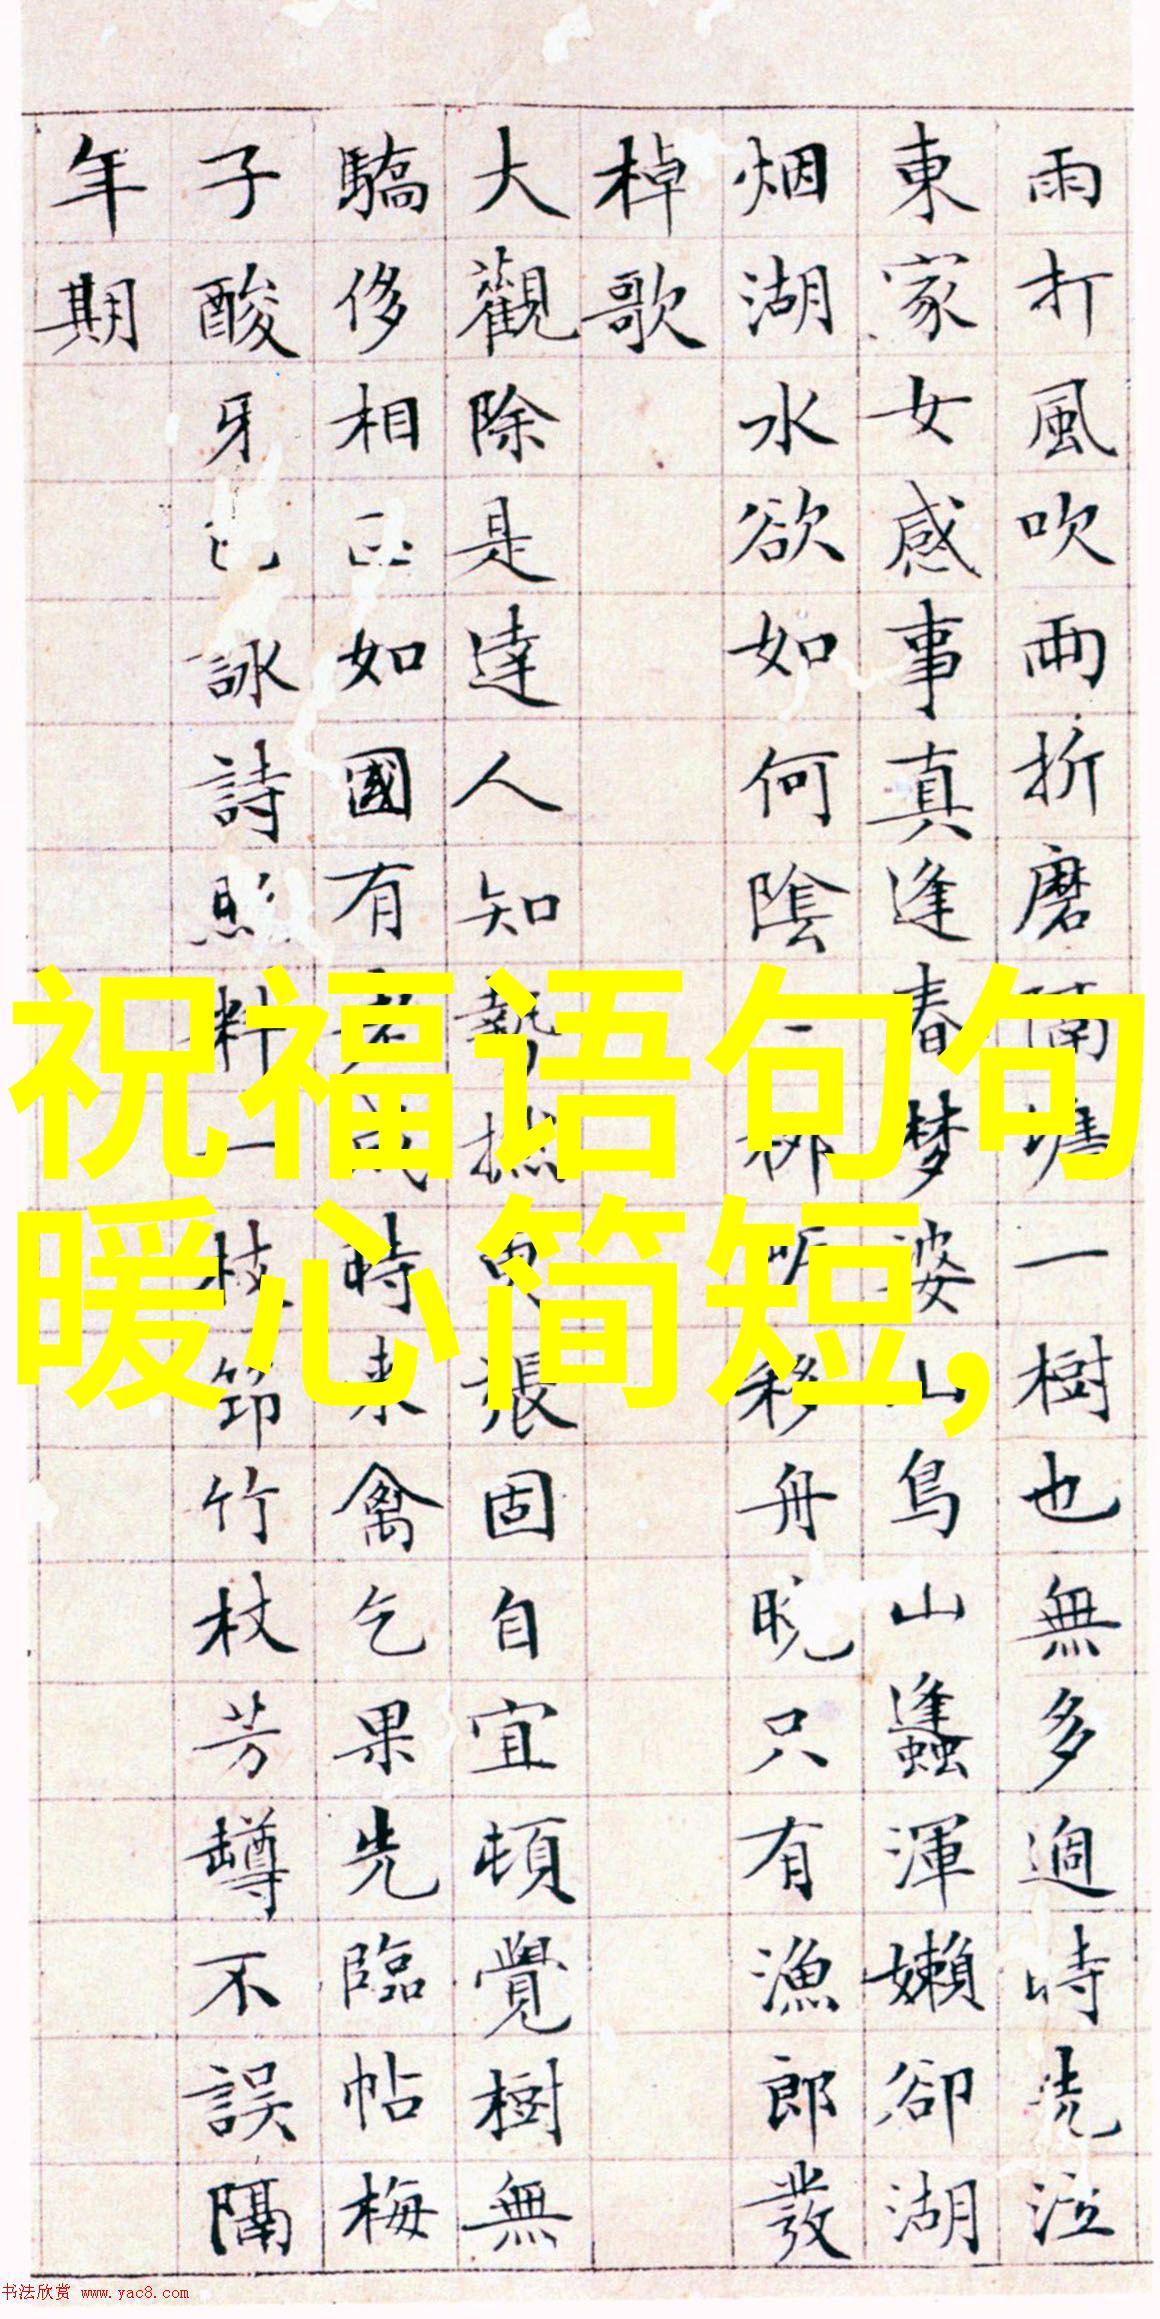 雨打風吹雨折磨隔塘一樹也無多過時洗泣
東家女感事真逢春夢婆山鳥山蠭渾嬾卻湖
烟湖水欲如何陰移舟晚只有漁郎發
棹歌
大觀除是達人知勢張固自宜頓覺樹無
驕侈相如國有時來禽乞果先臨帖梅
子酸牙詠詩照料一枝筇竹杖芳罇不誤隔
年期
祝福语句句
暖心简短,
书法欣赏 www.yac8.com